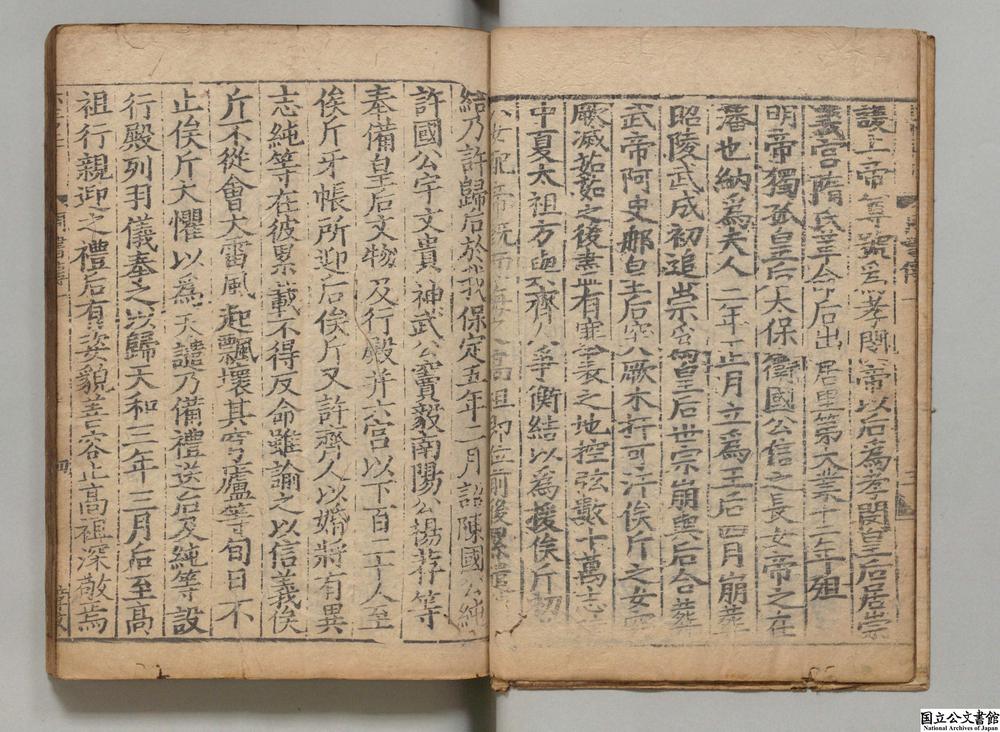 護上帝尊號爲孝閔帝以后爲孝閔皇后居崇
義宮隋氏革命后出居里第大業十二年殂
明帝獨孤皇后太保衛國公信之長女帝之在
藩也納爲夫人二年正月立爲王后四月崩葬
昭陵武成初追崇爲皇后世宗崩與后合葬
武帝阿史那皇后突厥木扞可汗俟斤之女突
厥滅茹茹之後盡有塞表之地控弦數十萬志
中夏太祖方與齊人爭衡結以爲援俟斤初
女配帝既而悔 高祖即位前後累遣
結乃許歸后於我保定五年二月詔陳國公純
許國公宇文貴神武公竇毅南陽公楊荐等
奉備皇后文物及行殿并六宮以下百二十人至
俟斤牙帳所迎后俟斤又許齊人以婚將有異
志純等在彼累載不得反命雖諭之以信義俟
斤不從會大雷風起飄壞其穹廬等旬日不
止俟斤大懼以爲天譴乃備禮送后及純等設
行殿列羽儀奉之以歸天和三年三月后至高
祖行親迎之禮后有姿貌善容止高祖深敬焉
周書傳一
四
国立公文書館
National Archives of Japan